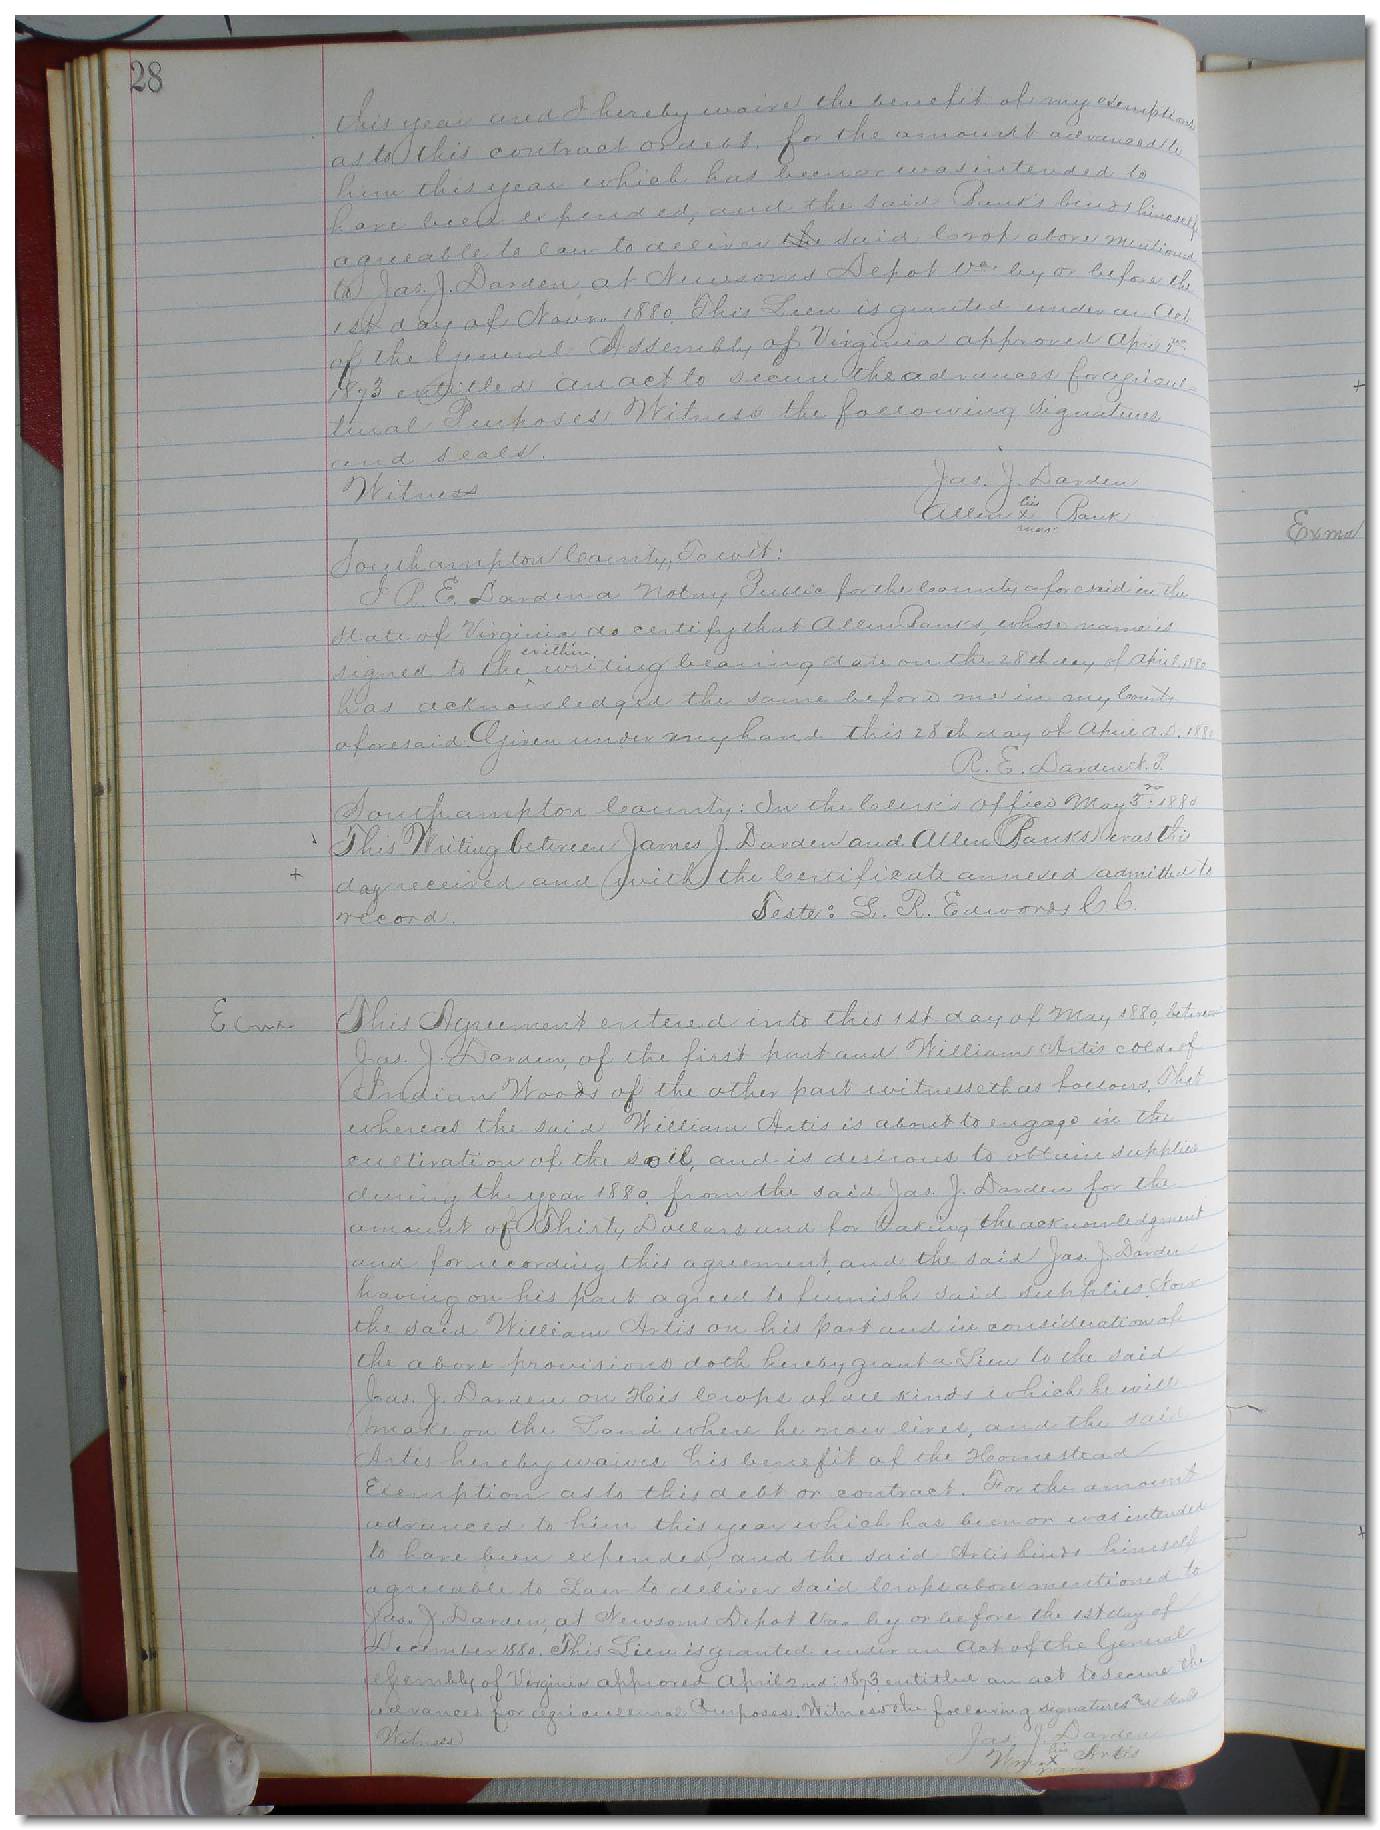 28
this year and I hereby waive the benefit of my exemptions
as to this contract or debt. for the amount advanced to
him this year which has been or was intended to
have been expended, and the said Banks binds himself
agreeable to law to deliver the said Crop above mentioned
to Jas. J. Darden at Newsoms Depot Va. by or before the
1st day of Novr. 1880. This Lien is granted under an Act
of the General Assembly of Virginia approved April 2nd
1873 entitled an act to secure the advances for agricul-
tural Purposes. Witness the following signatures
and seals.
Witness
Jas. J. Darden
Allen his x mark Bank
Southampton County, Towit:
I R. E. Darden a Notary Public for the County aforesaid in the
State of Virginia do certify that Allen Banks, whose name is
signed to the within writing bearing date on the 28th day of April 1880
has acknowledged the same before me in my County
aforesaid. Given under my hand this 28th day of April A.D. 1880
R. E. Darden N. P.
Southampton County: In the Clerk's Office May 3rd 1880
This Writing between James J. Darden and Allen Banks was this
+ day received and with the Certificate annexed admitted to
record. Teste: L. R. Edwards C C.
This Agreement entered into this 1st day of May 1880, between
Jas. J. Darden, of the first part and William Artis cold. of
Indian Woods of the other part witnesseth as follows, That
whereas the said William Artis is about to engage in the
cultivation of the soil, and is desirous to obtain supplies
during the year 1880 from the said Jas. J. Darden for the
amount of Thirty Dollars and for taking the acknowledgment
and for recording this agreement, and the said Jas. J. Darden
having on his part agreed to furnish said supplies. Now
the said William Artis on his part and in consideration of
the above provisions doth hereby grant a Lien to the said
Jas. J. Darden on His Crops of all kinds which he will
make on the Land where he now lives, and the said
Artis hereby waives his benefit of the Homestead
Exemption as to this debt or contract. For the amount
advanced to him this year which has been or was intended
to have been expended, and the said Artis binds himself
agreeable to Law to deliver said Crops above mentioned to
Jas. J. Darden, at Newsoms Depot Va. by or before the 1st day of
December 1880. This Lien is granted under an Act of the General
Assembly of Virginia approved April 2nd: 1873 entitled an act to secure the
advances for agricultural Purposes. Witness the following signatures and seals
Witness
Jas. J. Darden
Wm. his x mark Artis
+
Exmd
+